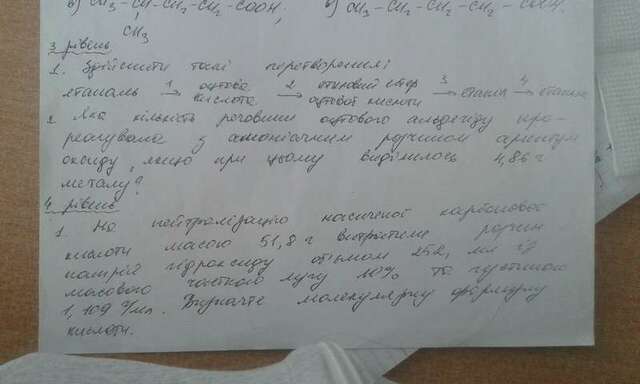 в) CH₃ – CH – CH₂ – CH₂ – COOH; в) CH₃ – CH₂ – CH₂ – CH₂ – COOH.
CH₃
3 рівень
1. Здійснити такі перетворення:
етаналь 1→ оцтова кислота 2→ етиловий естер оцтової кислоти 3→ етанол 4→
2. Яка кількість речовини оцтового альдегіду про-
реагувала з амоніачним розчином аргентум
оксиду, якщо при цьому виділилось 4,86 г
металу?
4 рівень
1. На нейтралізацію насиченої карбонової
кислоти масою 51,8 г витратили розчин
натрій гідроксиду об'ємом 252, мл із
масовою часткою лугу 10% та густиною
1,109 г/мл. Визначте молекулярну формулу
кислоти.